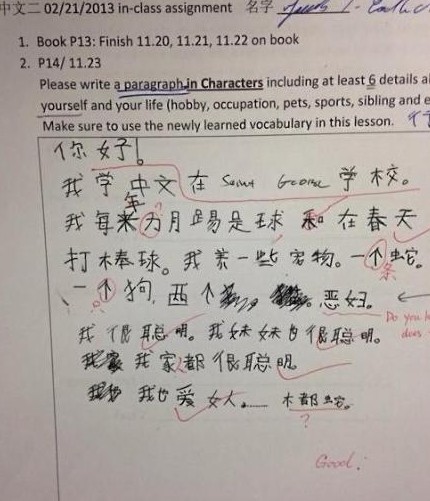 中文二 02/21/2013 in-class assignment 名字
1. Book P13: Finish 11.20, 11.21, 11.22 on book
2. P14/ 11.23
Please write a paragraph in Characters including at least 6 details a
yourself and your life (hobby, occupation, pets, sports, sibling and e
Make sure to use the newly learned vocabulary in this lesson.
你好!
我学中文在 Saint George 学校。
年
我每 月踢足球 和在春天
打棒球。我养一些宠物。一个蛇。
条
一个狗,两个 恶妇。
Do you h
does
我很聪明。我妹妹也很聪明。
我家都很聪明。
我也爱女人
都蛇。
?
Good!